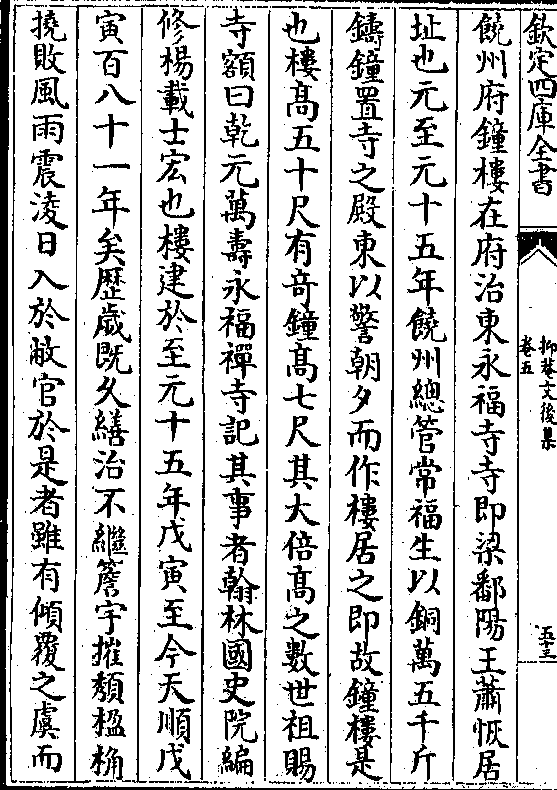 欽定四庫全書
抑菴文後集
卷五
五十三
饒州府鐘樓在府治東永福寺寺即梁鄱陽王蕭恢居
址也元至元十五年饒州總管常福生以銅萬五千斤
鑄鐘置寺之殿東以警朝夕而作樓居之即故鐘樓是
也樓髙五十尺有竒鐘髙七尺其大倍髙之數世祖賜
寺額曰乾元萬壽永福禪寺記其事者翰林國史院編
修楊載士宏也樓建於至元十五年戊寅至今天順戊
寅百八十一年矣歴歲既乆繕治不繼簷宇摧頽楹桷
撓敗風雨震淩日入於敝官於是者雖有傾覆之虞而